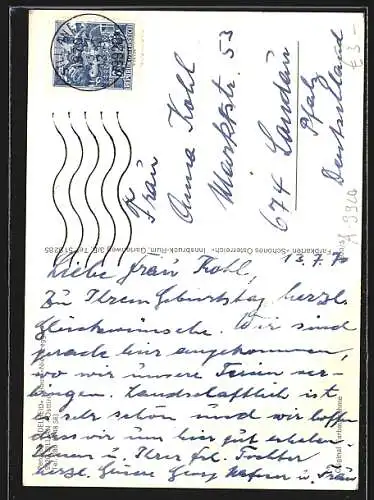 Frau
Anna Kohl
Marktstr. 53
674 Landau
Pfalz
Deutschland
€ 3-
A 9920
Farbkarten »Schönes Österreich« Innsbruck-Rum,
13.7.70
Liebe Frau Kohl,
Zu Ihrem Geburtstag herzl.
Glückwünsche. Wir sind
gerade hier angekommen,
wo wir unsere Ferien ver-
bringen. Landschaftlich ist
es sehr schön und wir hoffen
dass wir uns hier gut erholen.
Ihnen u. Ihrer Frl. Tochter
herzl. Grüsse Georg u. Frau